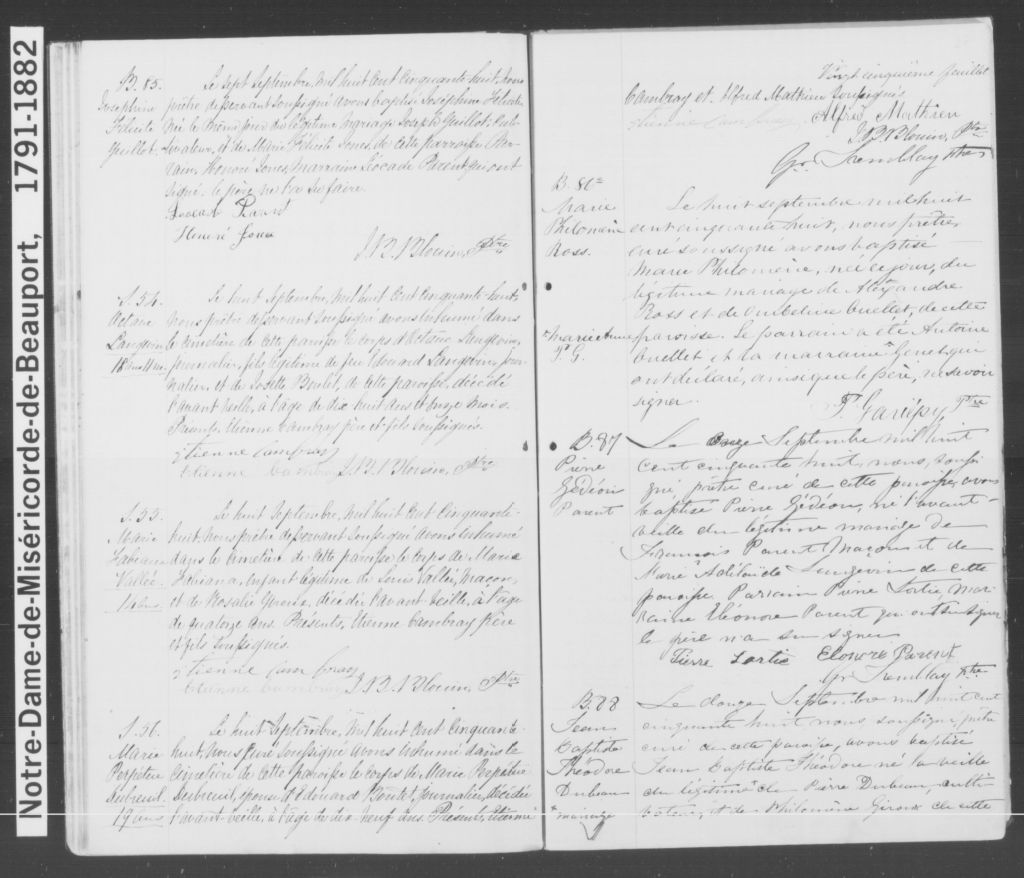 Notre-Dame-de-Miséricorde-de-Beauport, 1791-1882
B. 85.
Josephine
Félicité
Guillot.
Le sept Septembre, mil huit cent cinquante-huit, nous
prêtre desservant soussigné avons baptisé Joséphine Félicité
née le même jour du légitime mariage Joseph Guillot, Cul-
tivateur, et de Marie Félicité Jones, de cette paroisse Par-
rain Honoré Jones, Marraine Léocade Parent qui ont
signé. le père ne l'a su faire.
Honoré Jones
J. B. Blouin, Ptre
S. 54.
Octave
Langevin
18 ans 11 m.
Le huit Septembre, mil huit cent cinquante-huit,
nous prêtre desservant soussigné avons inhumé dans
le cimetière de cette paroisse le corps d'Octave Langevin,
journalier, fils légitime de feu Edouard Langevin, jour-
nalier, et de Josette Boulet, de cette paroisse, décédé
l'avant veille, à l'âge de dix huit ans et onze mois.
Présens, Etienne Cambray père et fils soussignés.
Etienne Cambray
Etienne Cambray J. B. Blouin, Ptre
S. 55.
Marie
Fabiana
Vallée
14 ans.
Le huit Septembre, mil huit cent cinquante-
huit, nous prêtre desservant soussigné avons inhumé
dans le cimetière de cette paroisse le corps de Marie
Fabiana, enfant légitime de Louis Vallée, Maçon,
et de Rosalie Giroux, décédée l'avant veille, à l'âge
de quatorze ans. Présents, Etienne Cambray père
et fils soussignés.
Etienne Cambray
Etienne Cambray J. B. Blouin, Ptre
S. 56.
Marie
Perpétue
Dubreuil.
19 ans
Le huit Septembre, mil huit cent cinquante-
huit, nous Curé soussigné avons inhumé dans le
cimetière de cette paroisse le corps de Marie Perpétue
Dubreuil, épouse d'Edouard Boutet, Journalier, décédée
l'avant-veille, à l'âge de dix-neuf ans. Présents, Etienne
Vingt cinquième feuillet
Cambray et Alfred Mathieu soussignés
Etienne Cambray Alfred Mathieu
J. B. Blouin, Ptre
Gr. Tremblay Ptre
B. 86e
Marie
Philomène
Ross.
Le huit septembre mil huit
cent cinquante huit, nous prêtre,
curé soussigné avons baptisé
Marie Philomène, née ce jour, du
légitime mariage de Alexandre
Ross et de Ombeline Ouellet, de cette
paroisse. Le parrain a été Antoine
Ouellet et la marraine * Genet, qui
ont déclaré, ainsi que le père, ne savoir
signer.
* Marie Anne
P. G.
P. Gariépy Ptre
B. 87
Pierre
Gédéon
Parent
Le onze Septembre mil huit
cent cinquante huit, nous, soussi
gné prêtre curé de cette paroisse, avons
baptisé Pierre Gédéon, né l'avant-
veille du légitime mariage de
François Parent Maçon et de
Marie Adélaïde Langevin de cette
paroisse Parrain Pierre Lortie Mar
raine Eléonore Parent qui ont su signer
le père n'a su signer
Pierre Lortie Elonore Parent
Gr. Tremblay Ptre
B. 88
Jean
Baptiste
Théodore
Dubeau
* mariage
Le douze Septembre mil huit cent
cinquante huit nous soussigné, prêtre
curé de cette paroisse, avons baptisé
Jean Baptiste Théodore né la veille
du légitime * de Pierre Dubeau, culti-
vateur, et de Philomène Giroux de cette